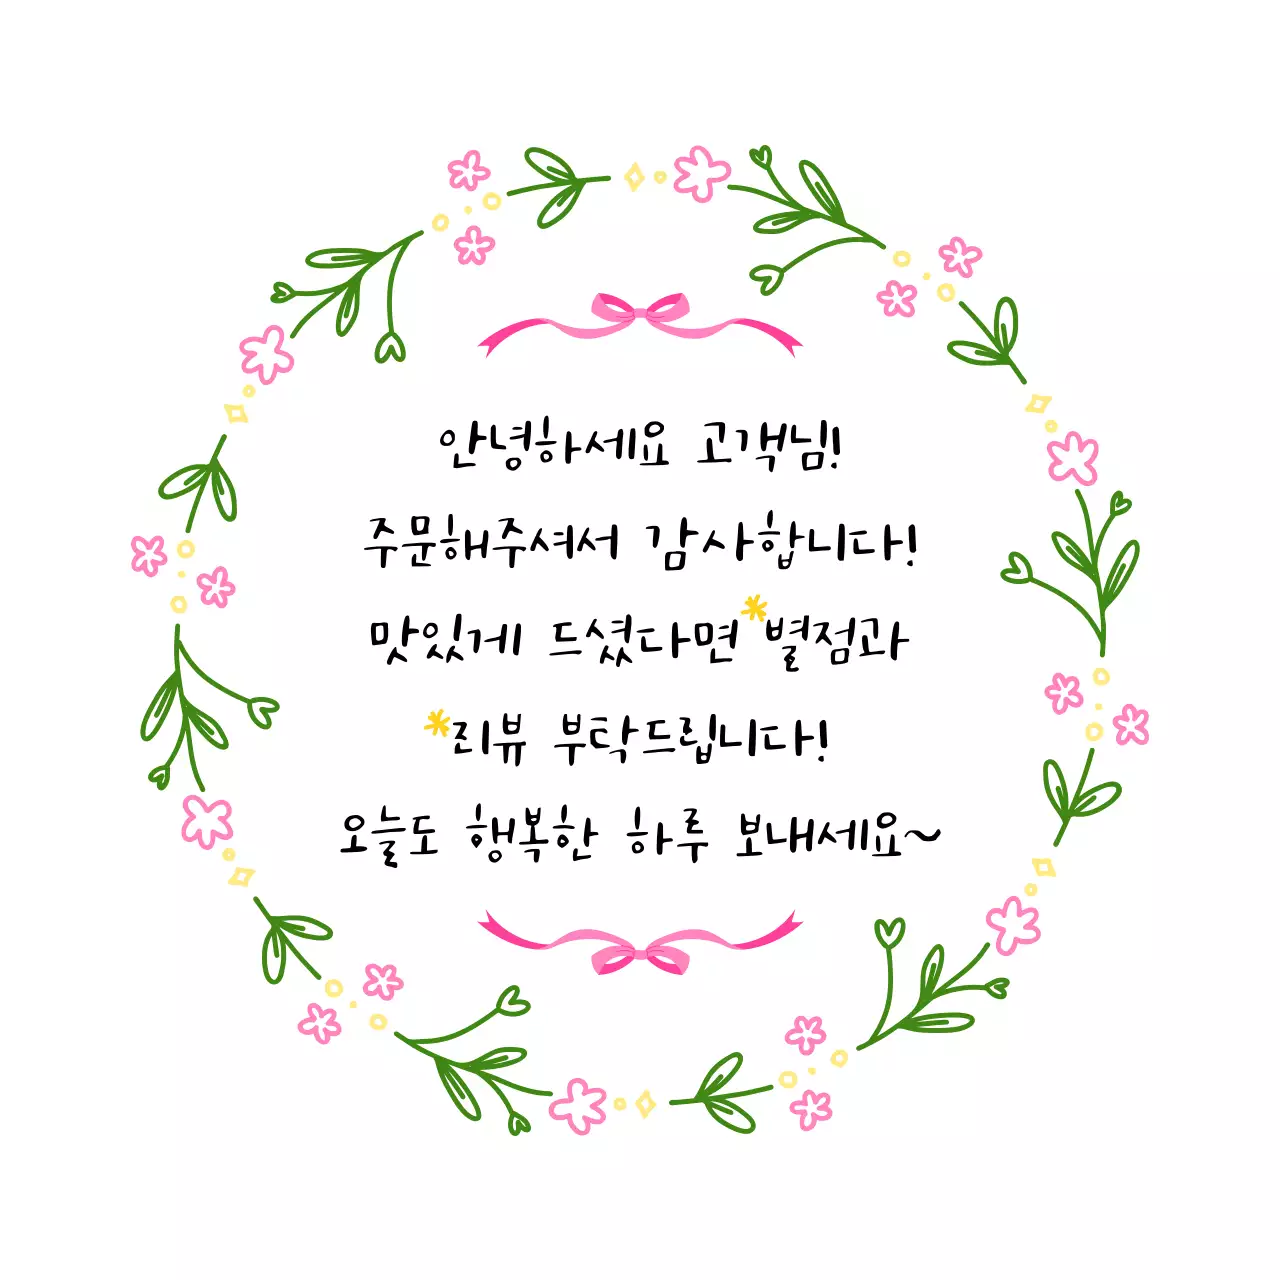 안녕하세요 고객님!
주문해주셔서 감사합니다!
맛있게 드셨다면 *별점과
*리뷰 부탁드립니다!
오늘도 행복한 하루 보내세요~